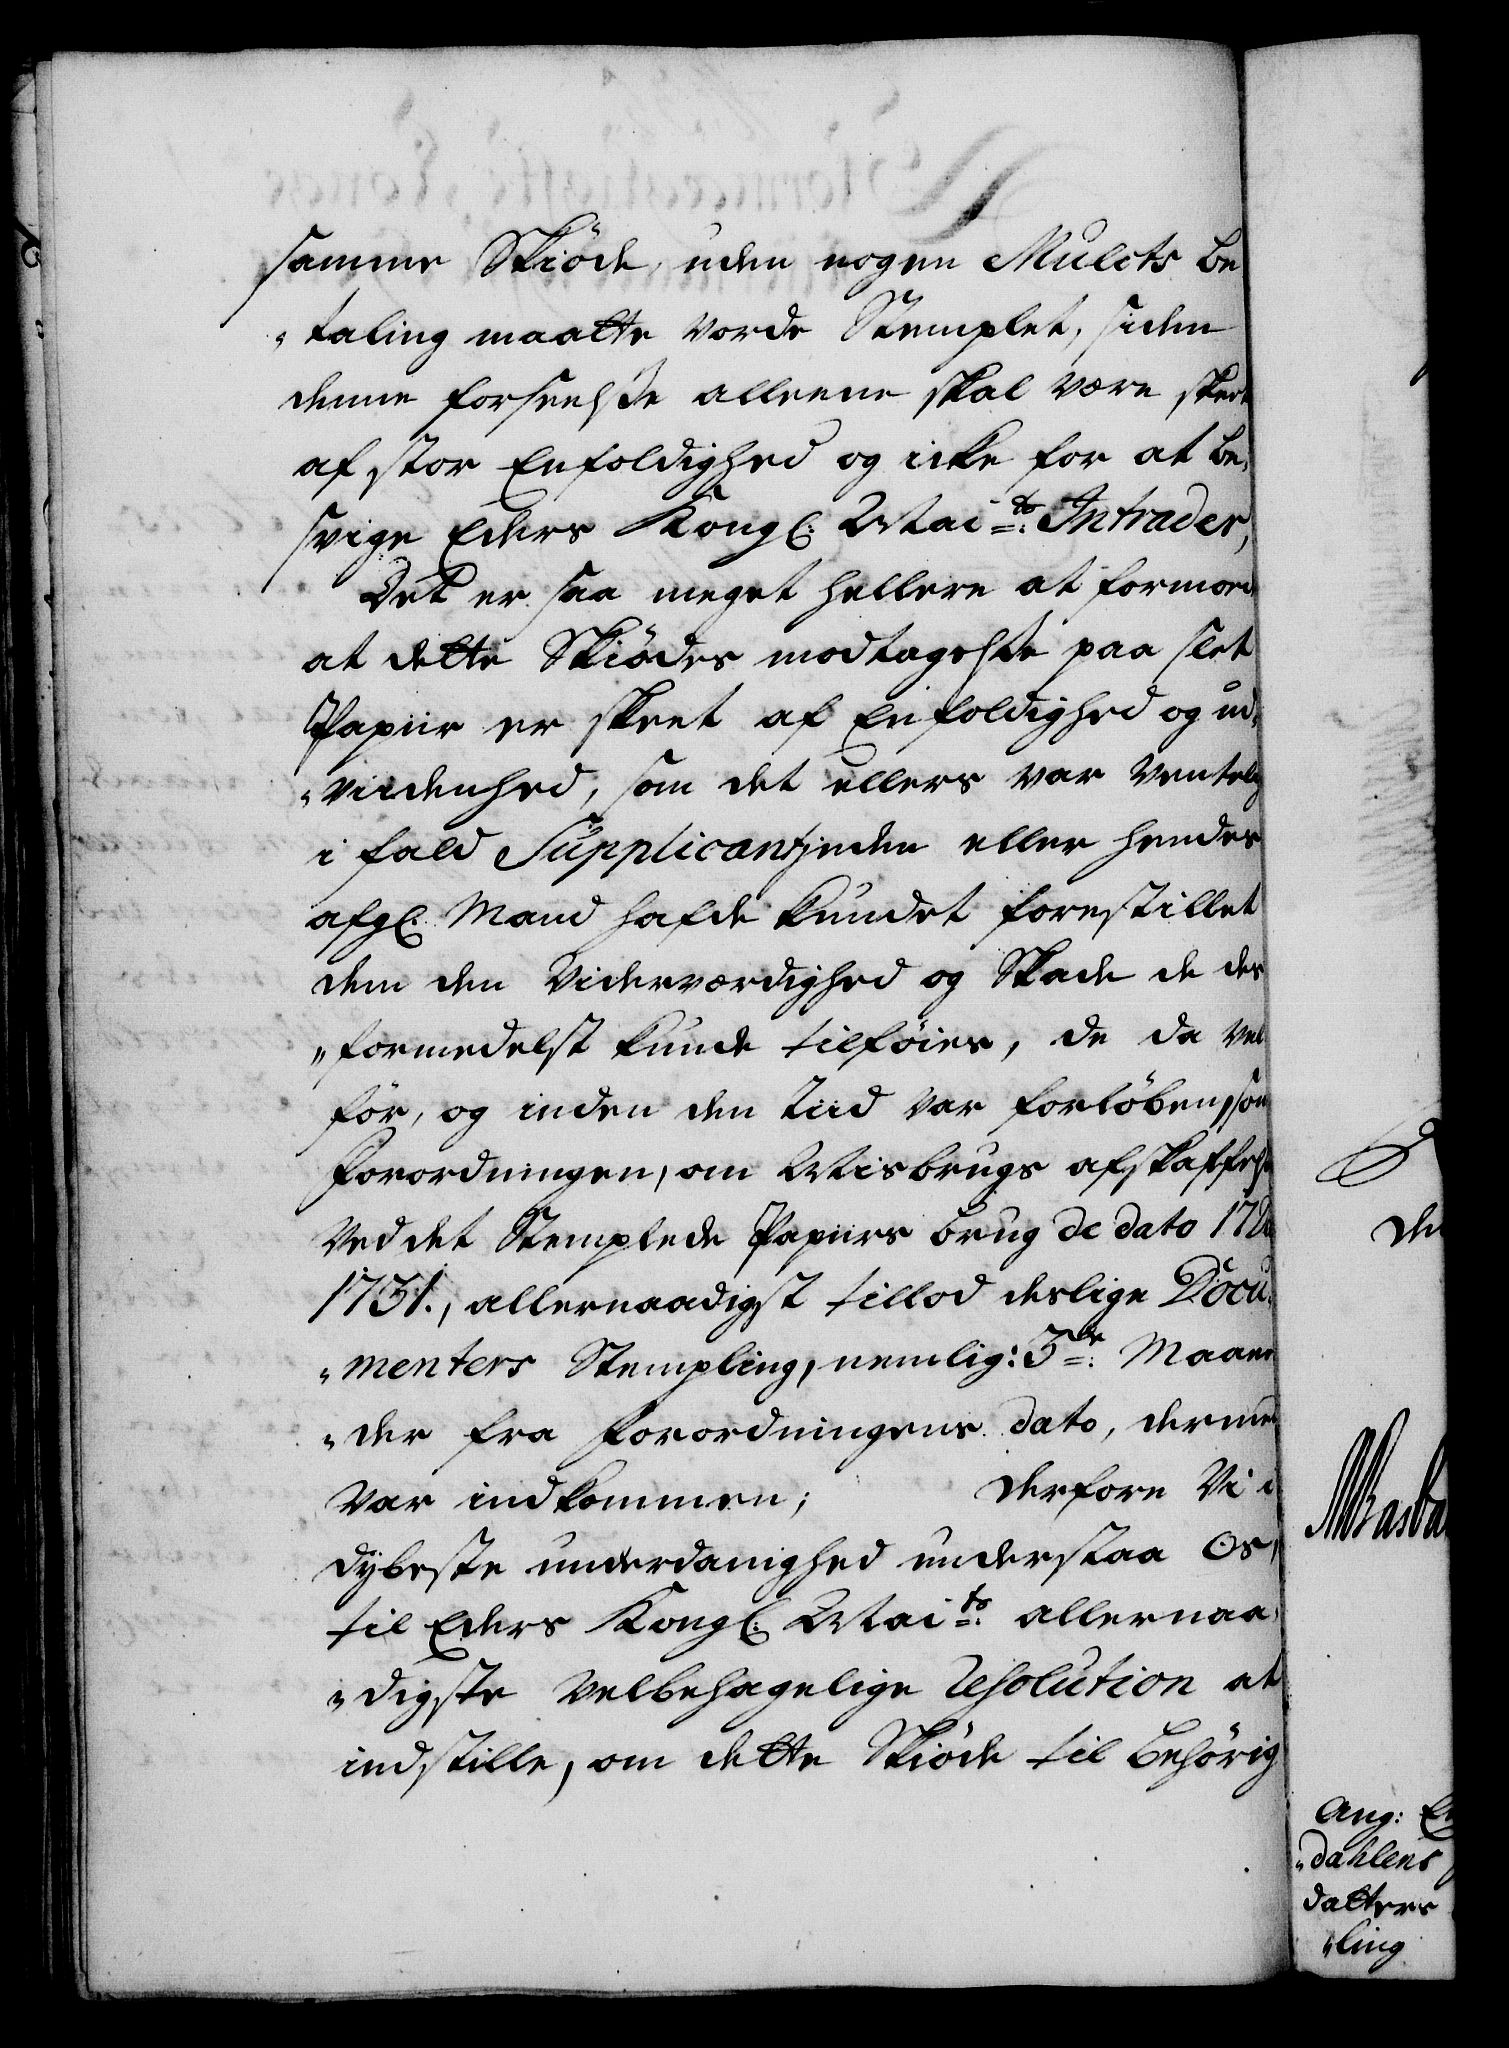 samme Skiöde, uden nogen Mulcts be
„taling maatte vorde Stemplet, siden
denne forseelse alleene skal være skeed
af stor Enfoldighed og icke for at be„
svige Eders Kongl: Maits: Intrader,
Det er saa meget hellere at formode
at dette Skiödes modtagelse paa slet
Papiir er skeet af Enfoldighed og u„
„videnhed, som det ellers var ventelig
i fald Supplicantinden eller hendes
afgl: Mand hafde kundet forestillet
dem den Viderværdighed og Skade de der
„formedelst kunde tilföies, de da vel
för, og inden den Tiid var forlöben, som
Forordningen, om Misbrugs afskaffelse
ved det Stemplede Papiirs brug de dato
1731., allernaadigst tillod deslige Docu„
„menters Stempling, nemlig: 3de: Maane
„der fra Forordningens dato, dermed
var indkommen; derfore Vi i
dybeste underdanighed understaa Os,
til Eders Kongl: Maits: allernaa„
„digste velbehagelige Resolution at
indstille, om dette Skiöde til behörig
Ang:
„dahlens
datters
„ling